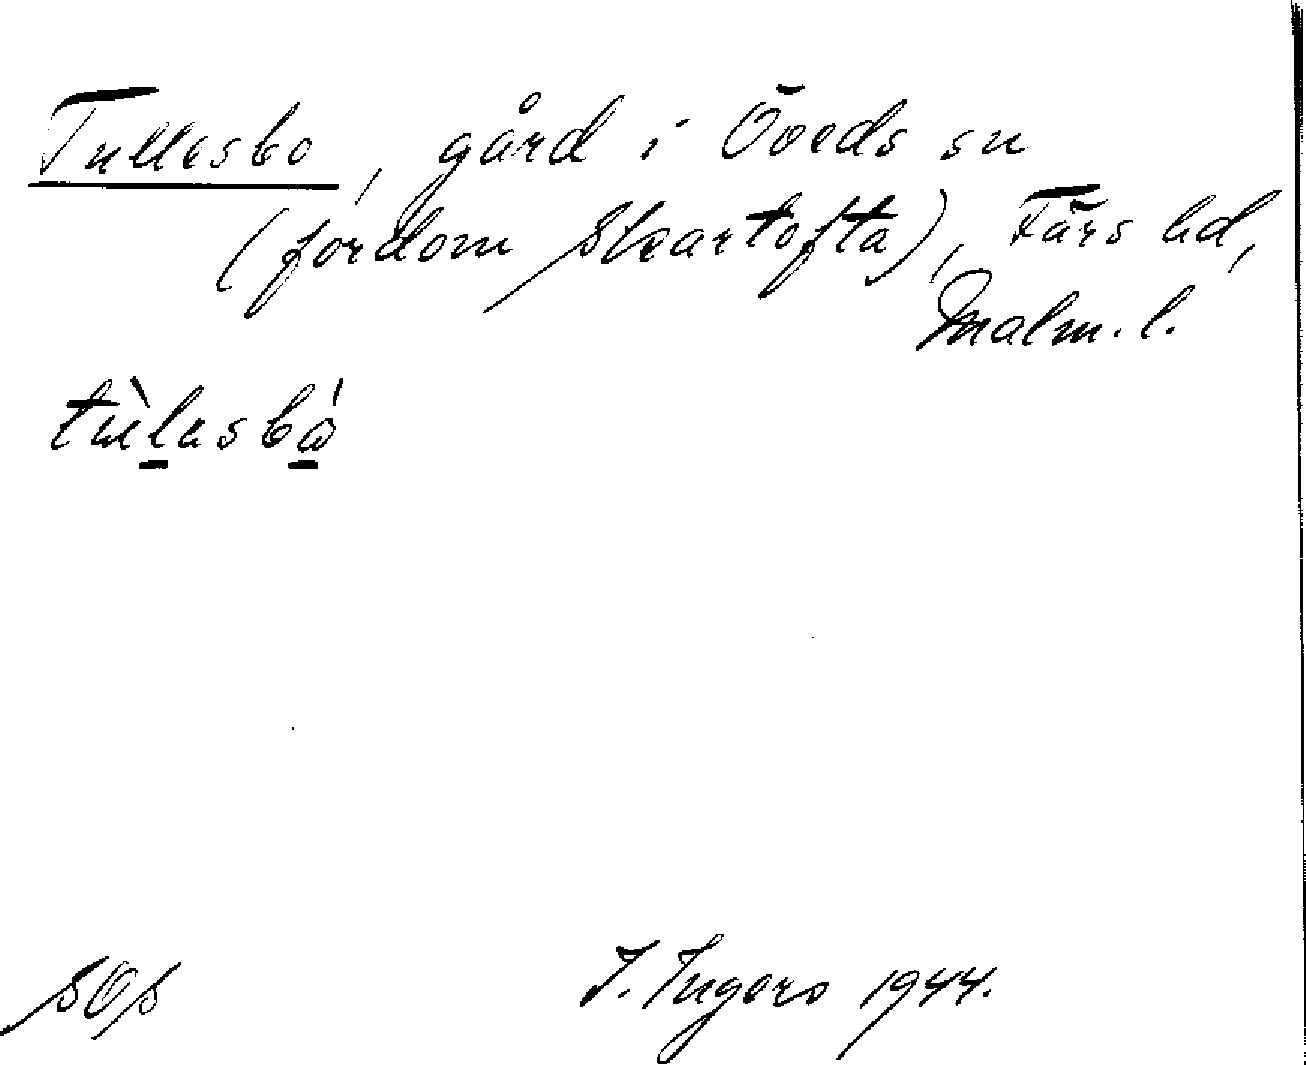 Tullesbo, gård i Öveds sn
(fordom Skartofta), Färs hd,
Malm. l.
SOS
I. Ingers 1944.